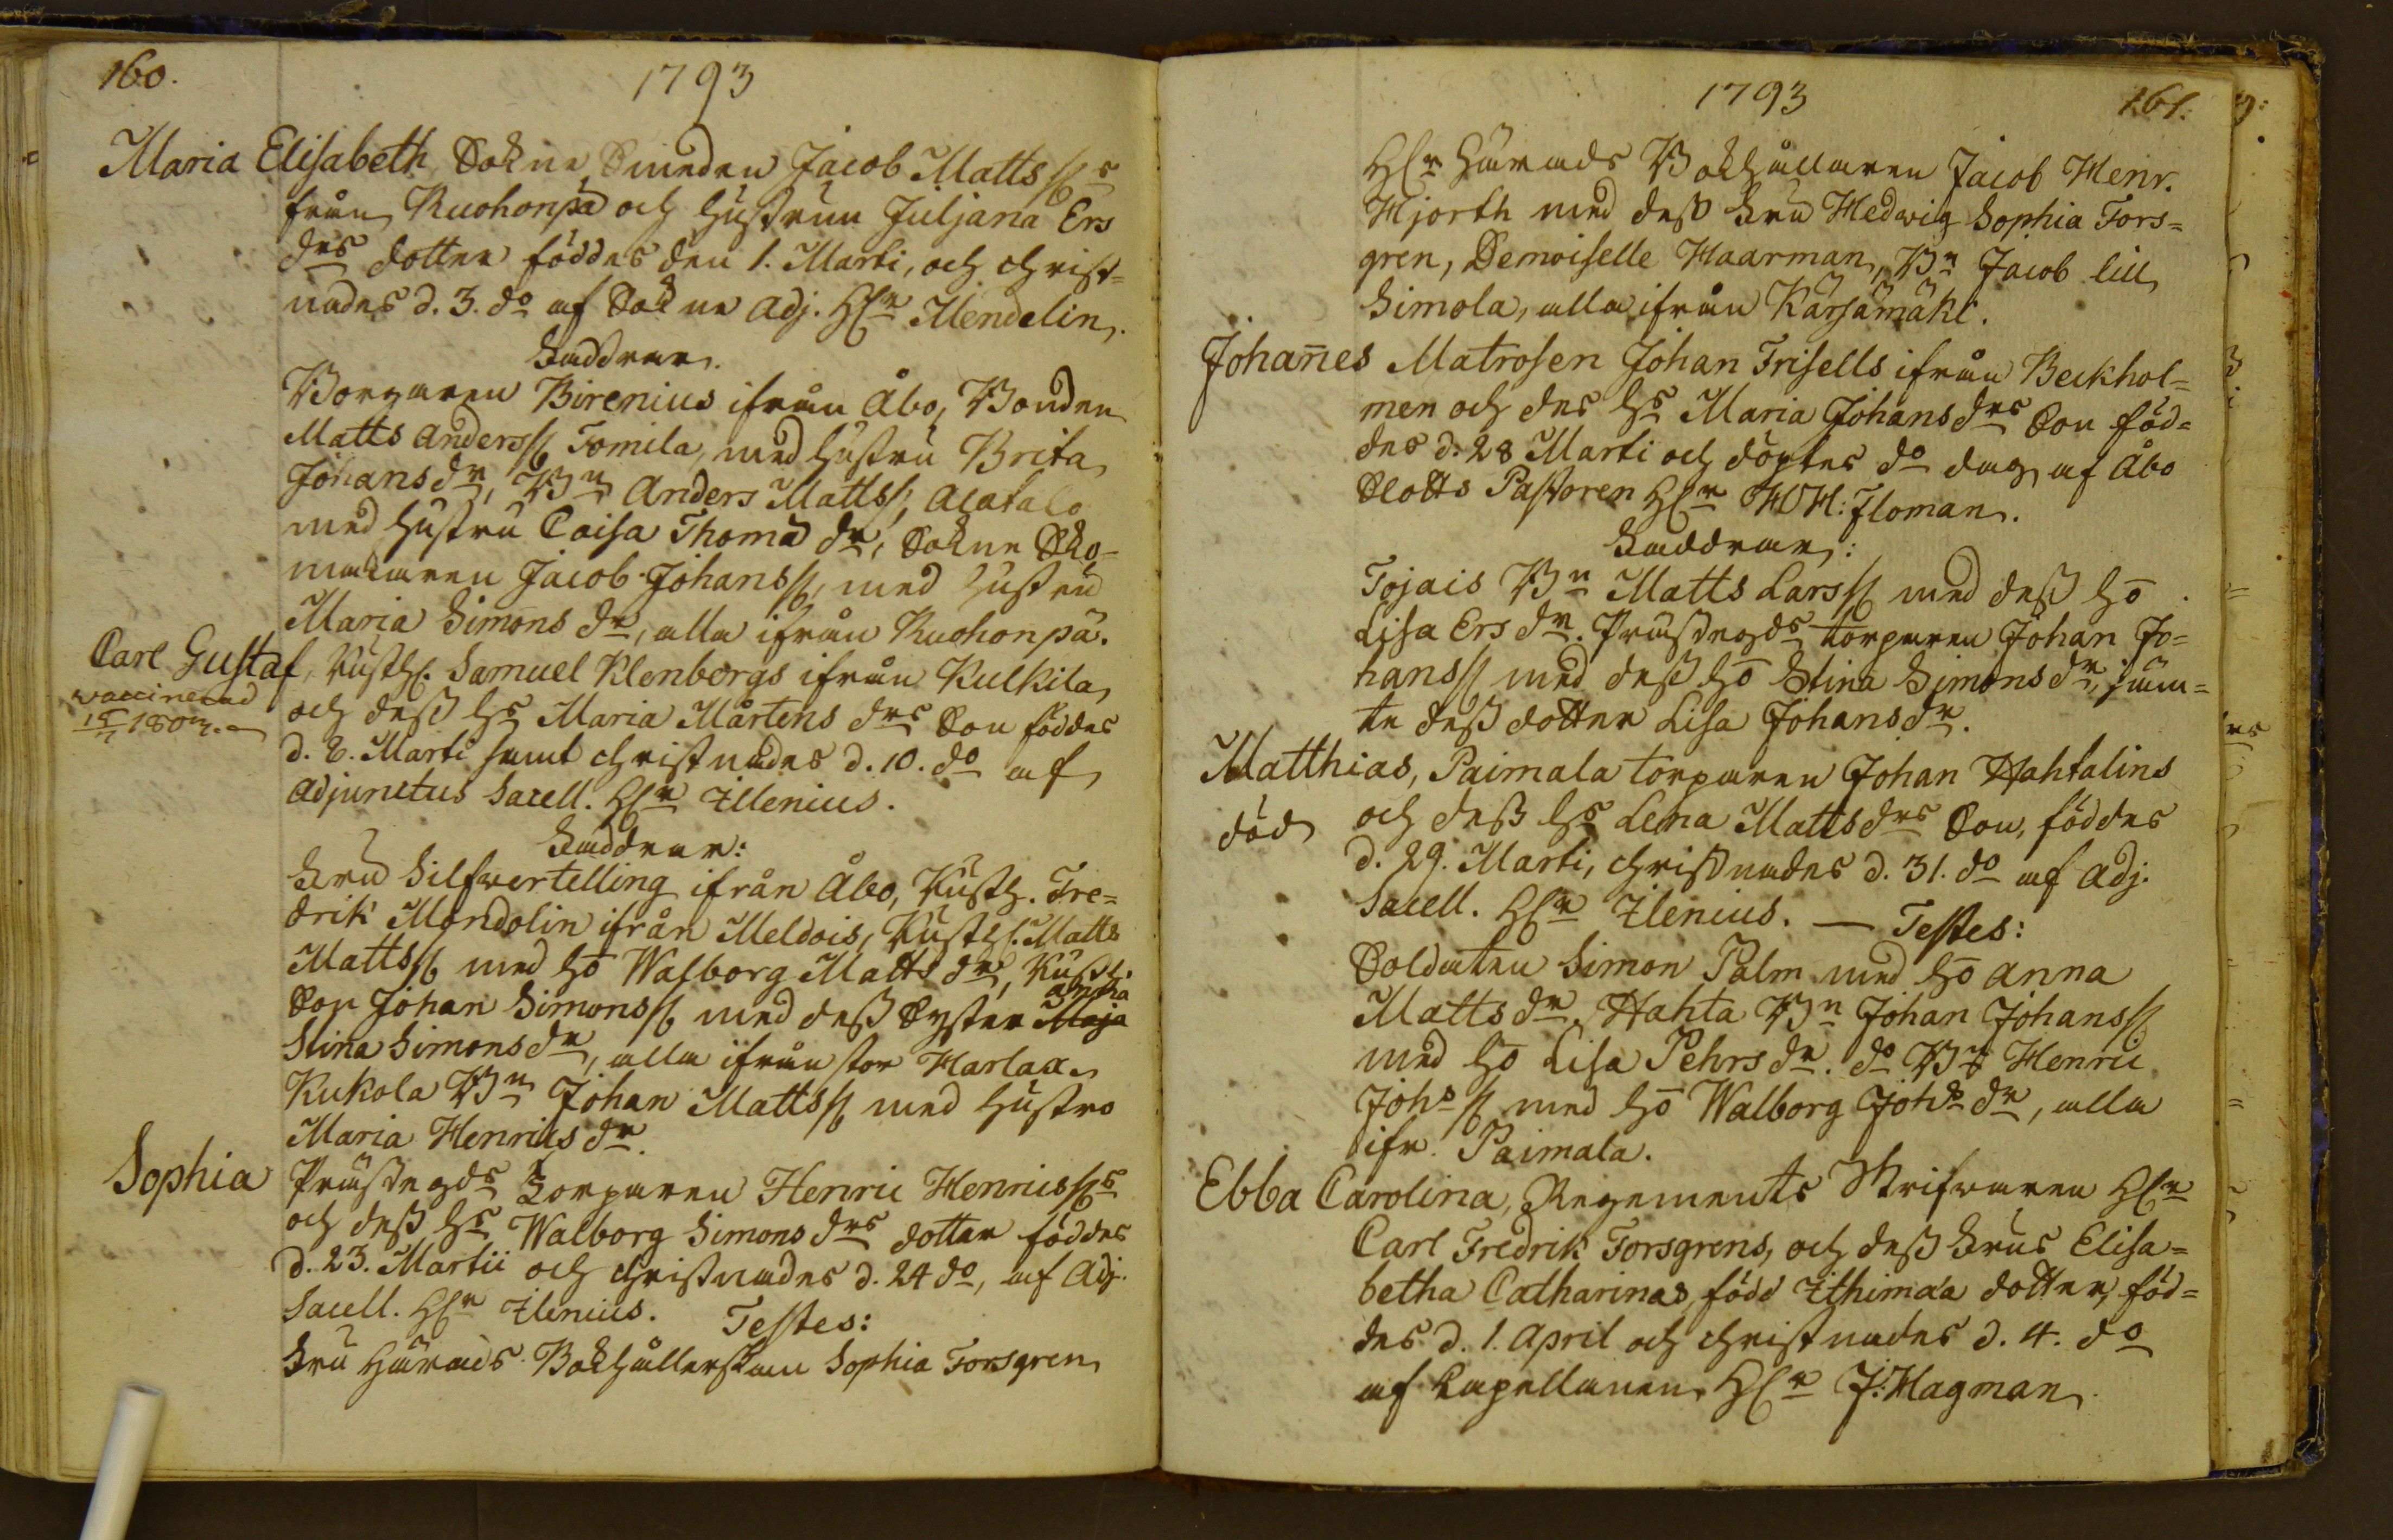 160.
1793
Maria Elisabeth, Sokne Smeden Jacob Mattss:s
från Ruohonpä och hustrun Juljana Ers
drs dotter föddes den 1. Marti, och christ=
nades d. 3. do af Sokne Adj. HEr Mendelin.
Faddrar.
Borgaren Birenius ifrån Åbo, Bonden
Matts Anderss: Tomila, med hustru Brita
Johansdr, Bn Anders Mattss: Alatalo
med hustru Caisa Thomæ dr, Sokne Sko-
makaren Jacob Johanss:, med hustru
Maria Simons dr, alla ifrån Ruohonpä.
Carl Gustaf, Rusth. Samuel Klenbergs ifrån Kulkila
vaccinerad
och dess hs Maria Mårtens drs Son föddes
d. 6. Marti samt christnades d. 10. do af
Adjunctus Sacell. HEr Ilenius.
Faddrar:
Fru Silfvertelling ifrån Åbo, Rusth. Fre=
drik Mondolin ifrån Meldois, Rusth. Matts
Mattss: med ho Walborg Matts dr, Rusth.
Son Johan Simonss: med dess Syster Maja Anna
Stina Simonsdr, alla ifrån stor Harlax.
Kukola Bn Johan Mattss: med hustro
Maria Henrics dr.
Sophia
Prästegds Torparen Henric Henricss:s
och dess hs Walborg Simons drs dotter föddes
d. 23. Martii och christnades d. 24 do, af Adj.
Sacell. HEr Ilenius. Testes:
Fru Härads Bokhållerskan Sophia Forsgren
1793
161.
HEr Härads Bokhållaren Jacob Henr.
Hjorth med dess Fru Hedwig Sophia Fors=
gren, Demoiselle Haarman, Bn Jacob lill
Simola, alla ifrån Kärsämäki.
Johan̄es Matrosen Johan Frisells ifrån Beckhol=
men och des hs Maria Johans drs Son föd=
des d. 28 Marti och döptes do dag af Åbo
Slotts Pastoren HEr H: Floman.
Faddrar:
Tojais Bn Matts Larss: med dess ho
Lisa Ers dr. Prästegds torparen Johan Jo=
hanss: med dess ho Stina Simons dr, jäm=
te dess dotter Lisa Johansdr.
Matthias, Paimala torparen Johan Hahtalins
död
och dess hs Lena Mattsdrs Son, föddes
d. 29. Marti, christnades d. 31. do af Adj.
Sacell. HEr Ilenius. — Testes:
Soldaten Simon Palm med ho Anna
Matts dr. Hahta Bn Johan Johanss:
med ho Lisa Pehrs dr. do Bn Henric
Johs s: med ho Walborg Johs dr, alla
ifr. Paimala.
Ebba Carolina, Regements Skrifvaren HEr
Carl Fredrik Forsgrens, och dess Frus Elisa=
betha Catharinas, född Ithimæa dotter, föd=
des d. 1. April och christnades d. 4. do
af Capellanen HEr J. Hagman.